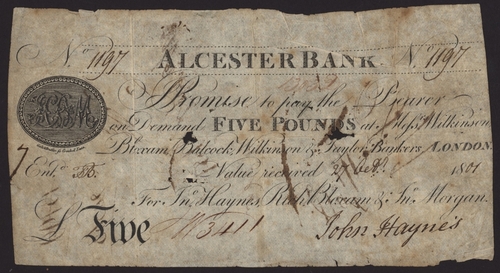 No. 1197 ALCESTER BANK No. 1197
I Promise to pay the Bearer
on Demand FIVE POUNDS at Messrs. Wilkinson
Bloxam Wilkinson & Taylor Bankers LONDON
Value received 1801
For Jno. Haynes, Richd. Bloxam & Jn. Morgan.
£ Five
John Haynes